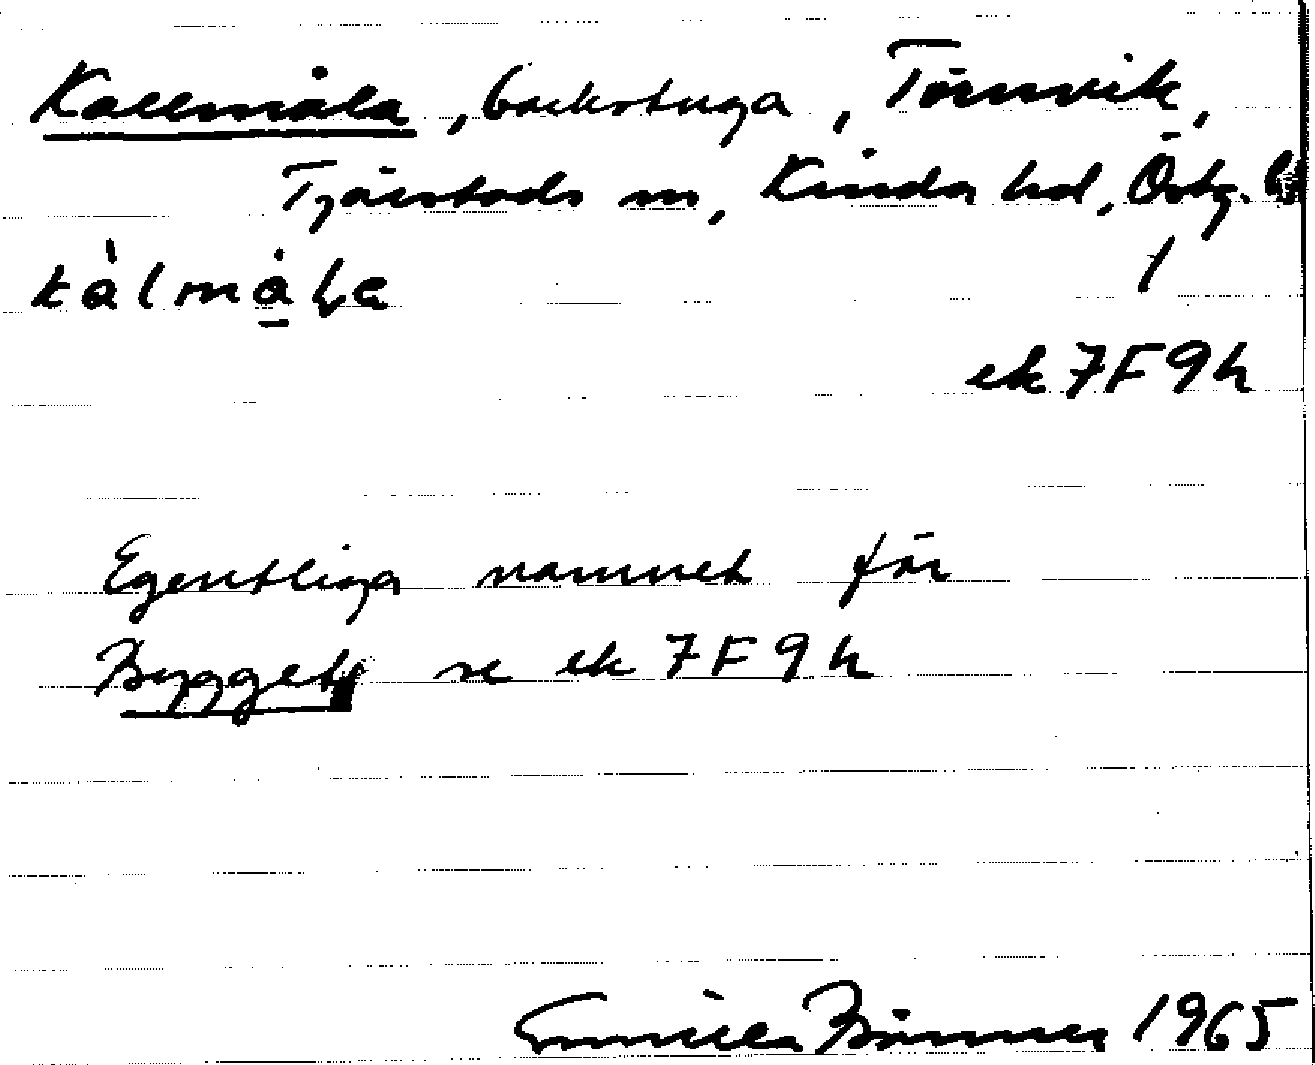 Kallmåla, backstuga, Törnvik,
Tjärstads sn, Kinda hd, Östg. l
kàlmåla
ek 7F9h
Egentliga namnet för
Bygget, se ek 7F9h
Gunilla Brömmer 1965